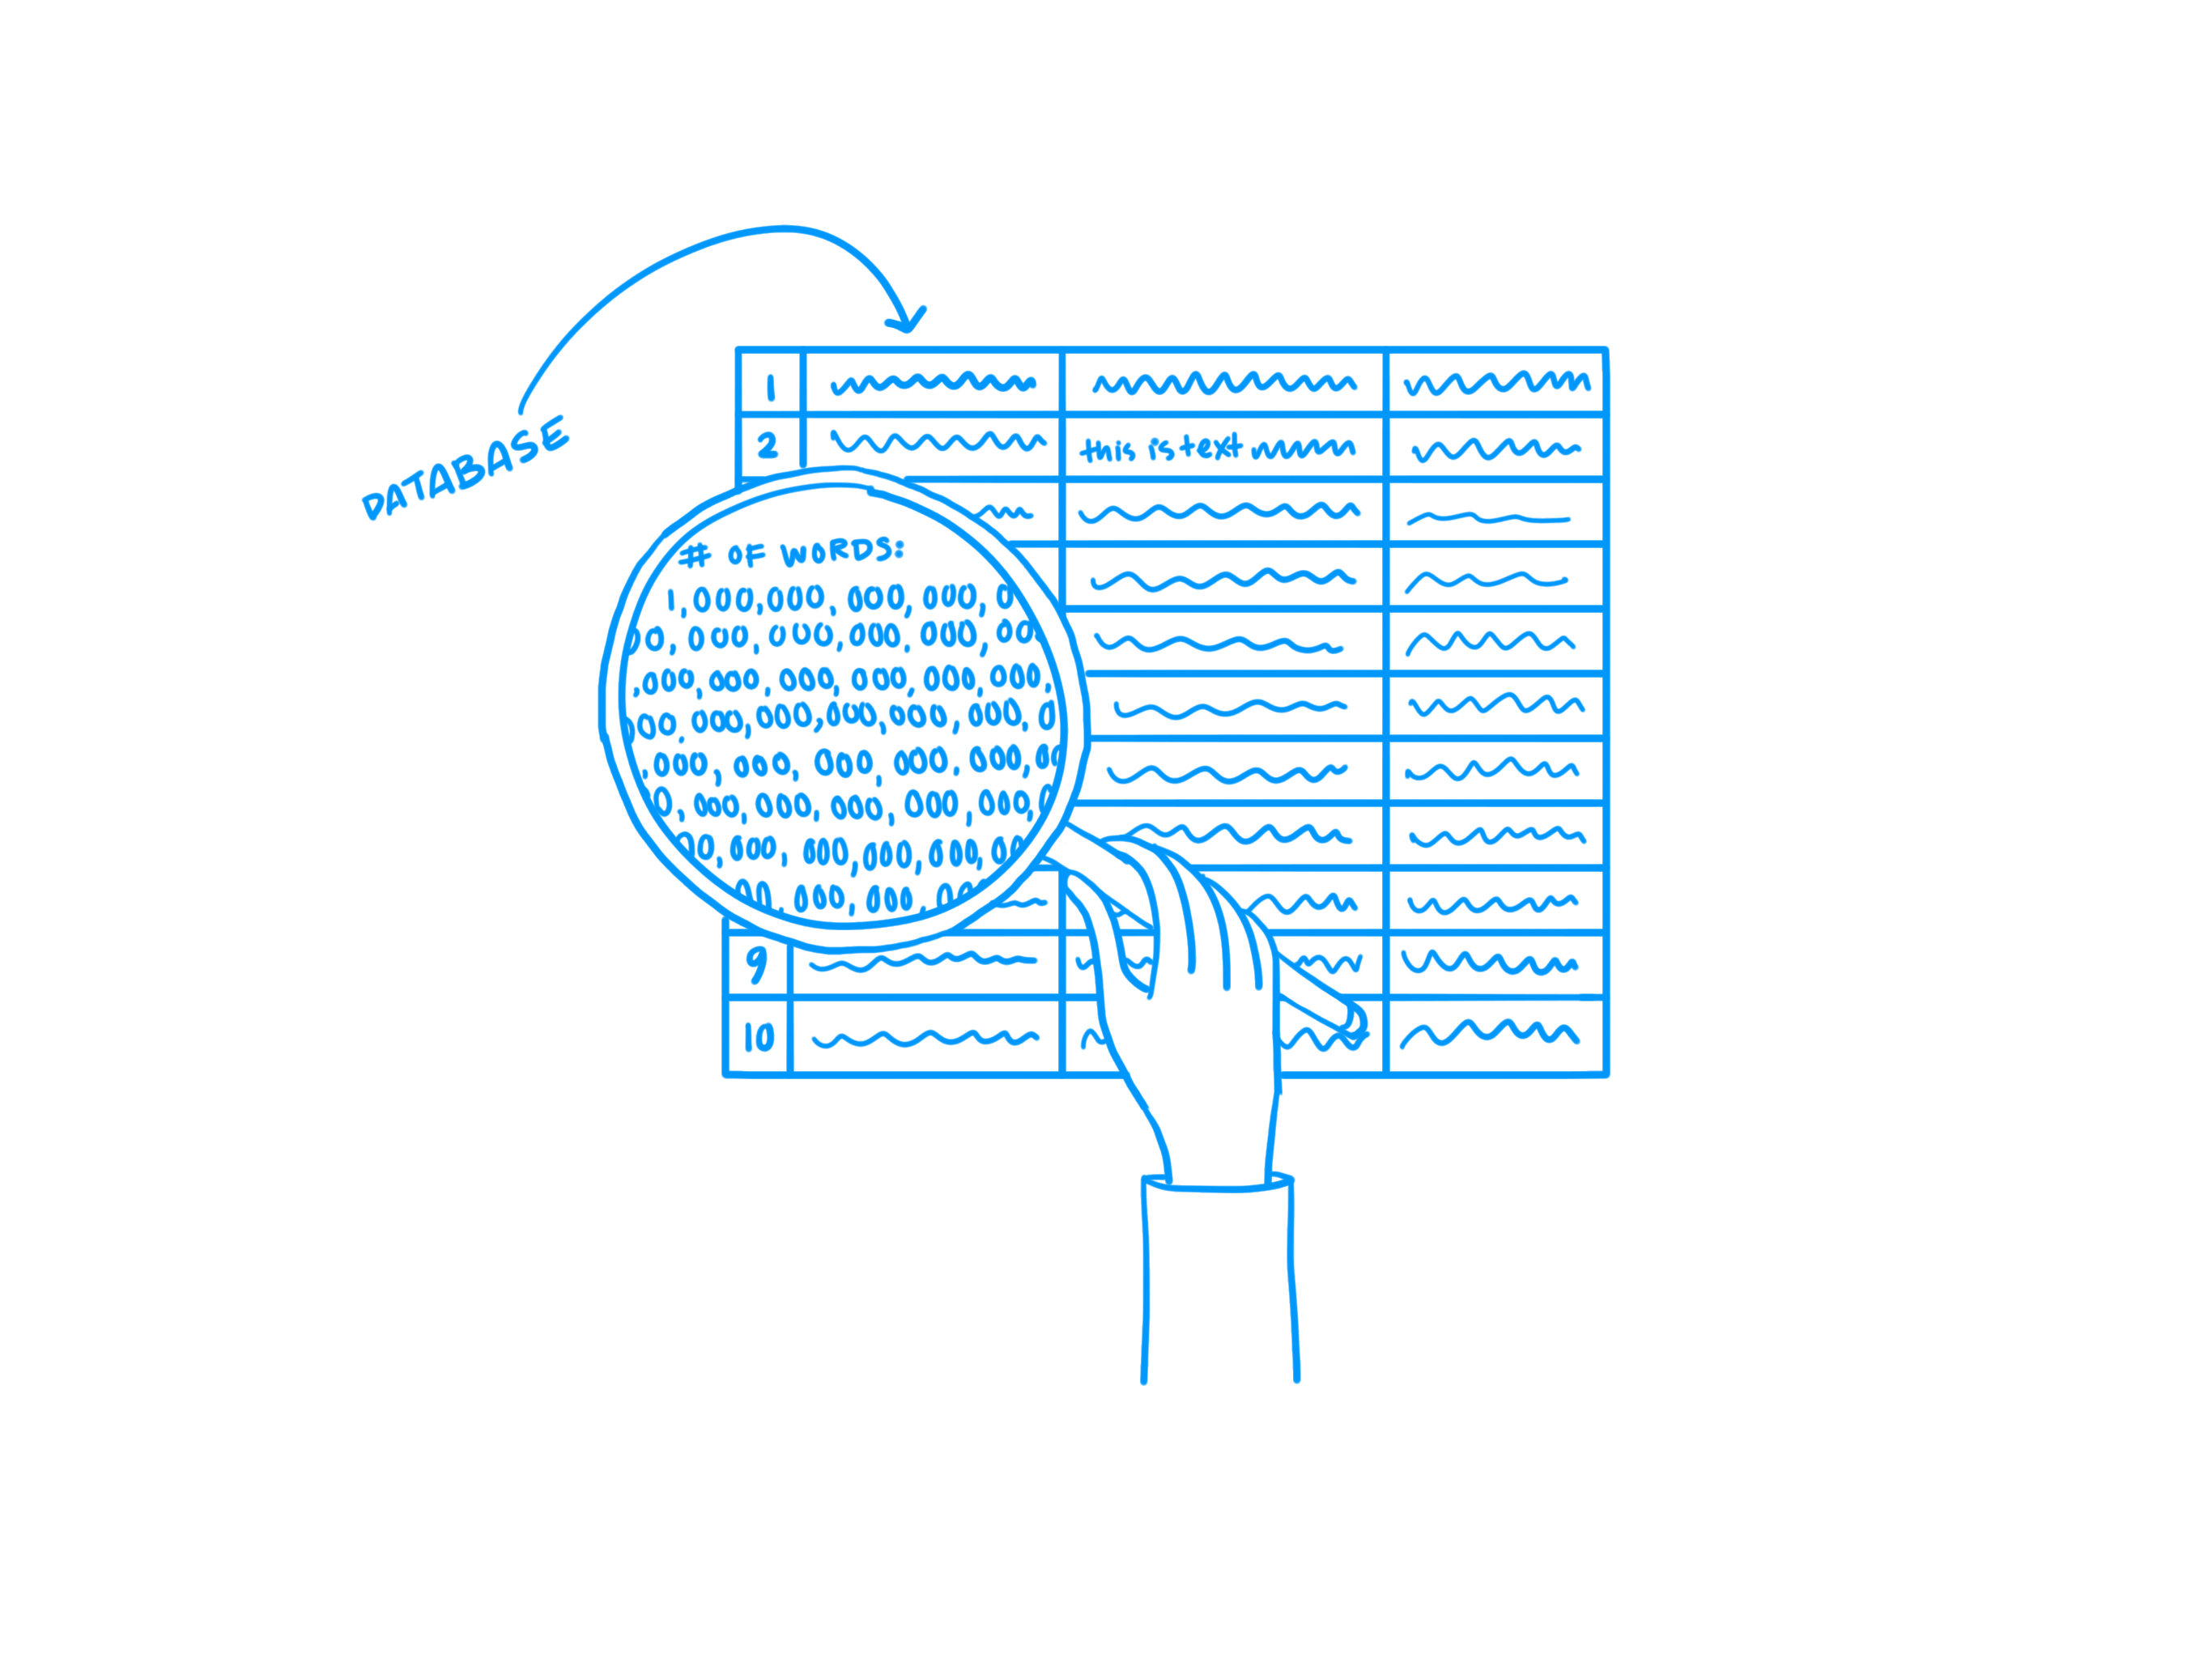 DATABASE
1
2
this is text
# OF WORDS:
1,000,000,000,000,0
0,000,000,000,000,00
,000,000,000,000,000,000,
00,000,000,000,000,000,0
,000,000,000,000,000,00
0,000,000,000,000,000,0
00,000,000,000,000,00
00,000,000,00
9
10